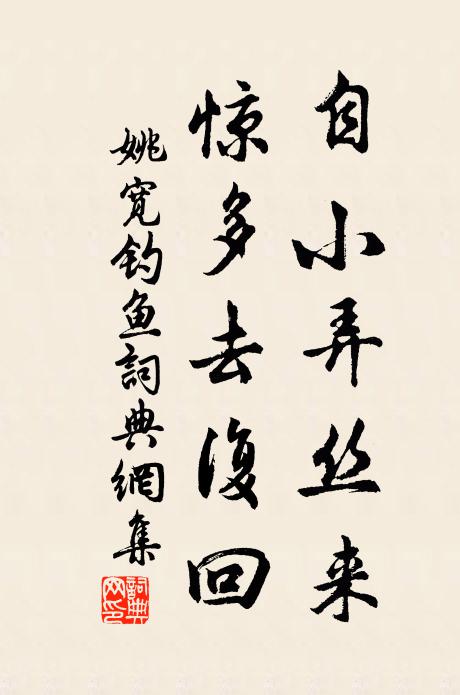 自小弄丝来
惊多去復回
姚宽钓鱼詞典網集
詞典网印